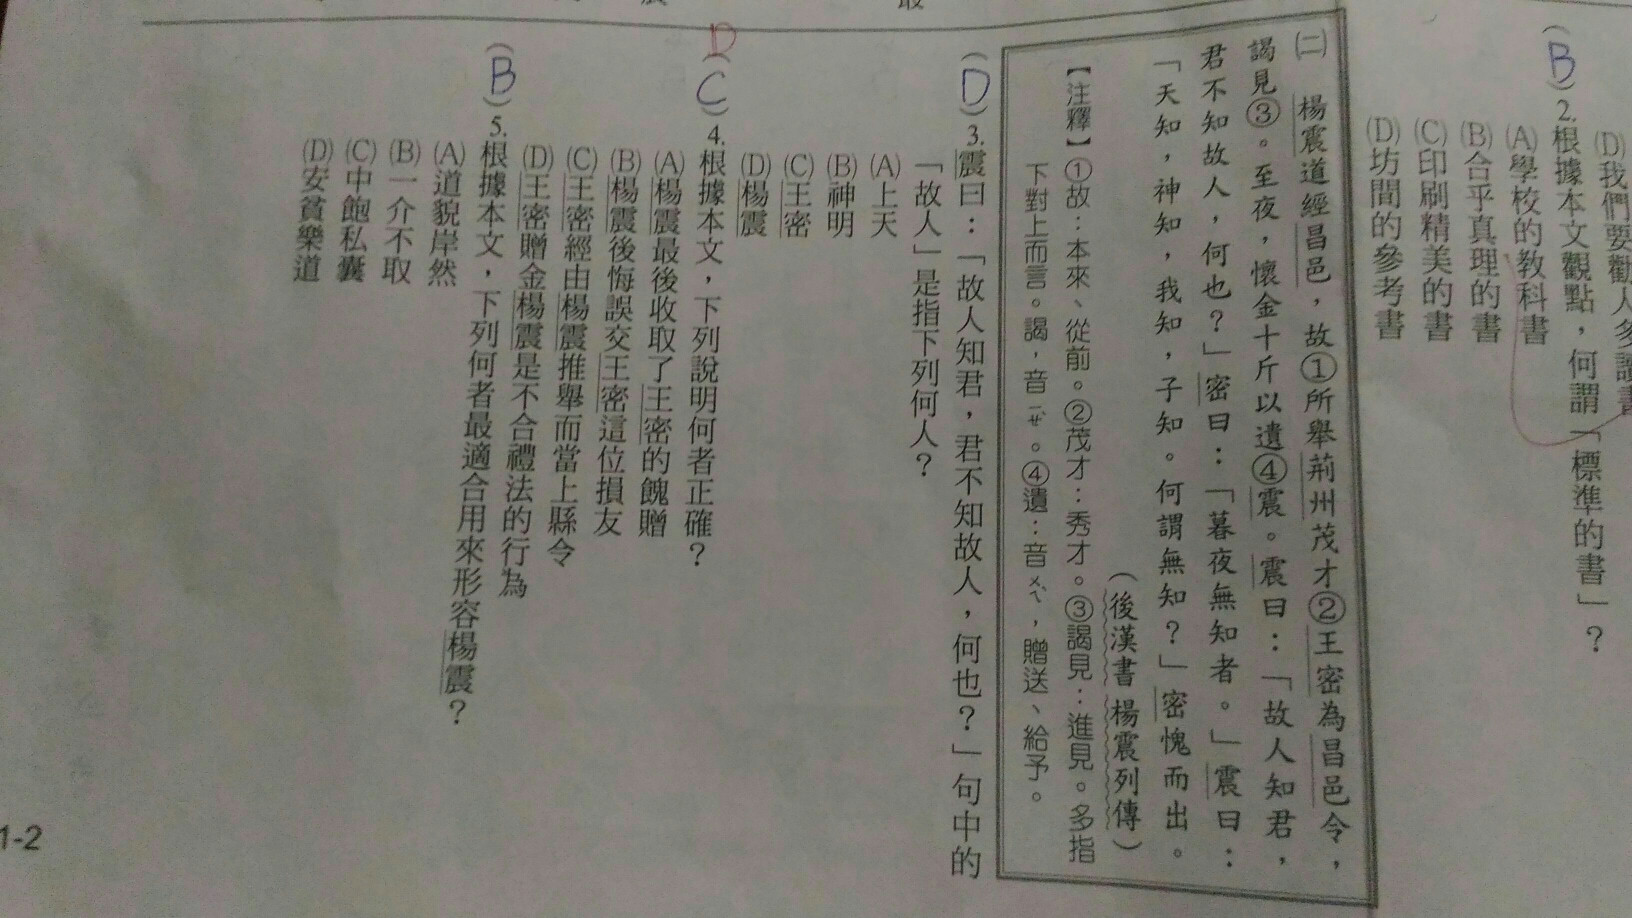 (D)我們要勸人多讀書
(B)2.根據本文觀點，何謂「標準的書」？
(A)學校的教科書
(B)合乎真理的書
(C)印刷精美的書
(D)坊間的參考書
㈡ 楊震道經昌邑，故①所舉荊州茂才②王密為昌邑令，
謁見③。至夜，懷金十斤以遺④震。震曰：「故人知君，
君不知故人，何也？」密曰：「暮夜無知者。」震曰：
「天知，神知，我知，子知。何謂無知？」密愧而出。
（後漢書 楊震列傳）
【注釋】①故：本來、從前。②茂才：秀才。③謁見：進見。多指
下對上而言。謁，音ㄧㄝˋ。④遺：音ㄨㄟˋ，贈送、給予。
(D)3.震曰：「故人知君，君不知故人，何也？」句中的
「故人」是指下列何人？
(A)上天
(B)神明
(C)王密
(D)楊震
D
(C)4.根據本文，下列說明何者正確？
(A)楊震最後收取了王密的餽贈
(B)楊震後悔誤交王密這位損友
(C)王密經由楊震推舉而當上縣令
(D)王密贈金楊震是不合禮法的行為
(B)5.根據本文，下列何者最適合用來形容楊震？
(A)道貌岸然
(B)一介不取
(C)中飽私囊
(D)安貧樂道
1-2